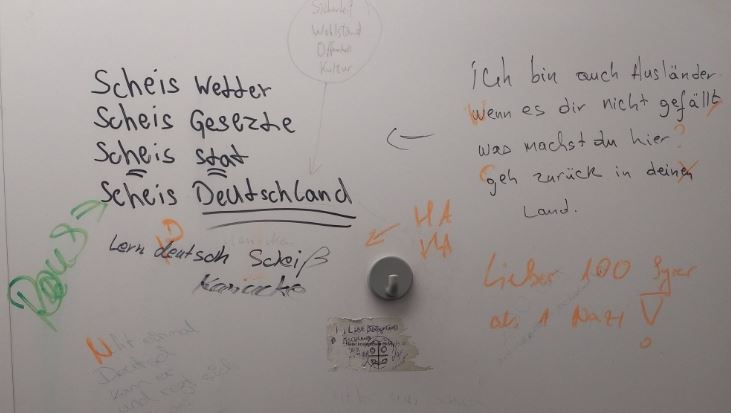 Sicherheit
Wohlstand
Offenheit
Kultur
Scheis Wetter
Scheis Gesezte
Scheis stat
Scheis Deutschland
Lern Deutsch Scheiß
ich bin auch Ausländer
Wenn es dir nicht gefällt,
was machst du hier?
Geh zurück in dein
Land.
HA
HA
Lieber 100 Syrer
als 1 Nazi !
Nicht einmal
Deutsch
kann er
und regt sich